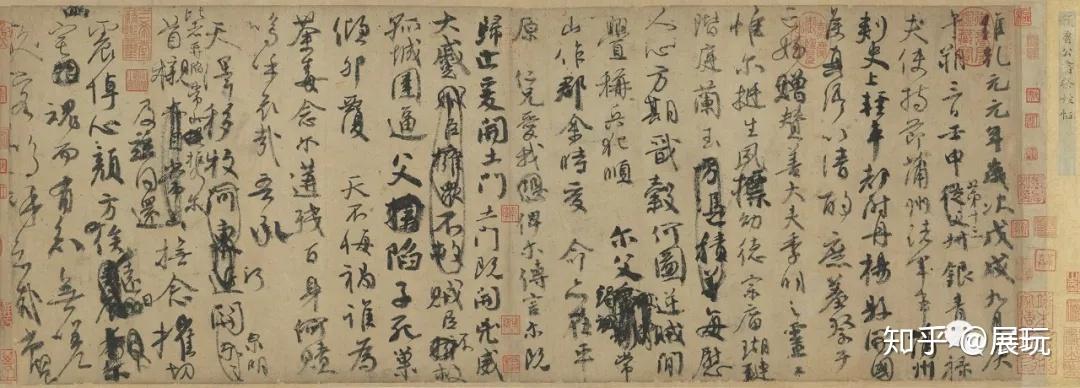 維乾元元年歲次戊戌九月庚
午朔三日壬申第十三從父叔銀青光祿
夫使持節蒲州諸軍事蒲州
刺史上輕車都尉丹楊縣開國
侯真卿以清酌庶羞祭于
亡姪贈贊善大夫季明之靈曰
惟爾挺生夙標幼德宗廟瑚璉
階庭蘭玉方憑積善每慰
人心方期戩穀何圖逆賊閒
釁稱兵犯順爾父竭誠常
山作郡余時受命亦在平
原仁兄愛我恐俾爾傳言爾既
歸止爰開土門土門既開兇威
大蹙賊臣擁眾不救賊臣不救
孤城圍逼父陷子死巢
傾卵覆天不悔禍誰為
荼毒念爾遘殘百身何贖
嗚呼哀哉吾承
天澤移牧河東近河關泉明
比者再陷常山攜爾
首櫬及茲同還撫念摧切
震悼心顏方俟遠日
宅魂而有知無嗟
久客嗚呼哀哉尚饗
知乎 @展玩